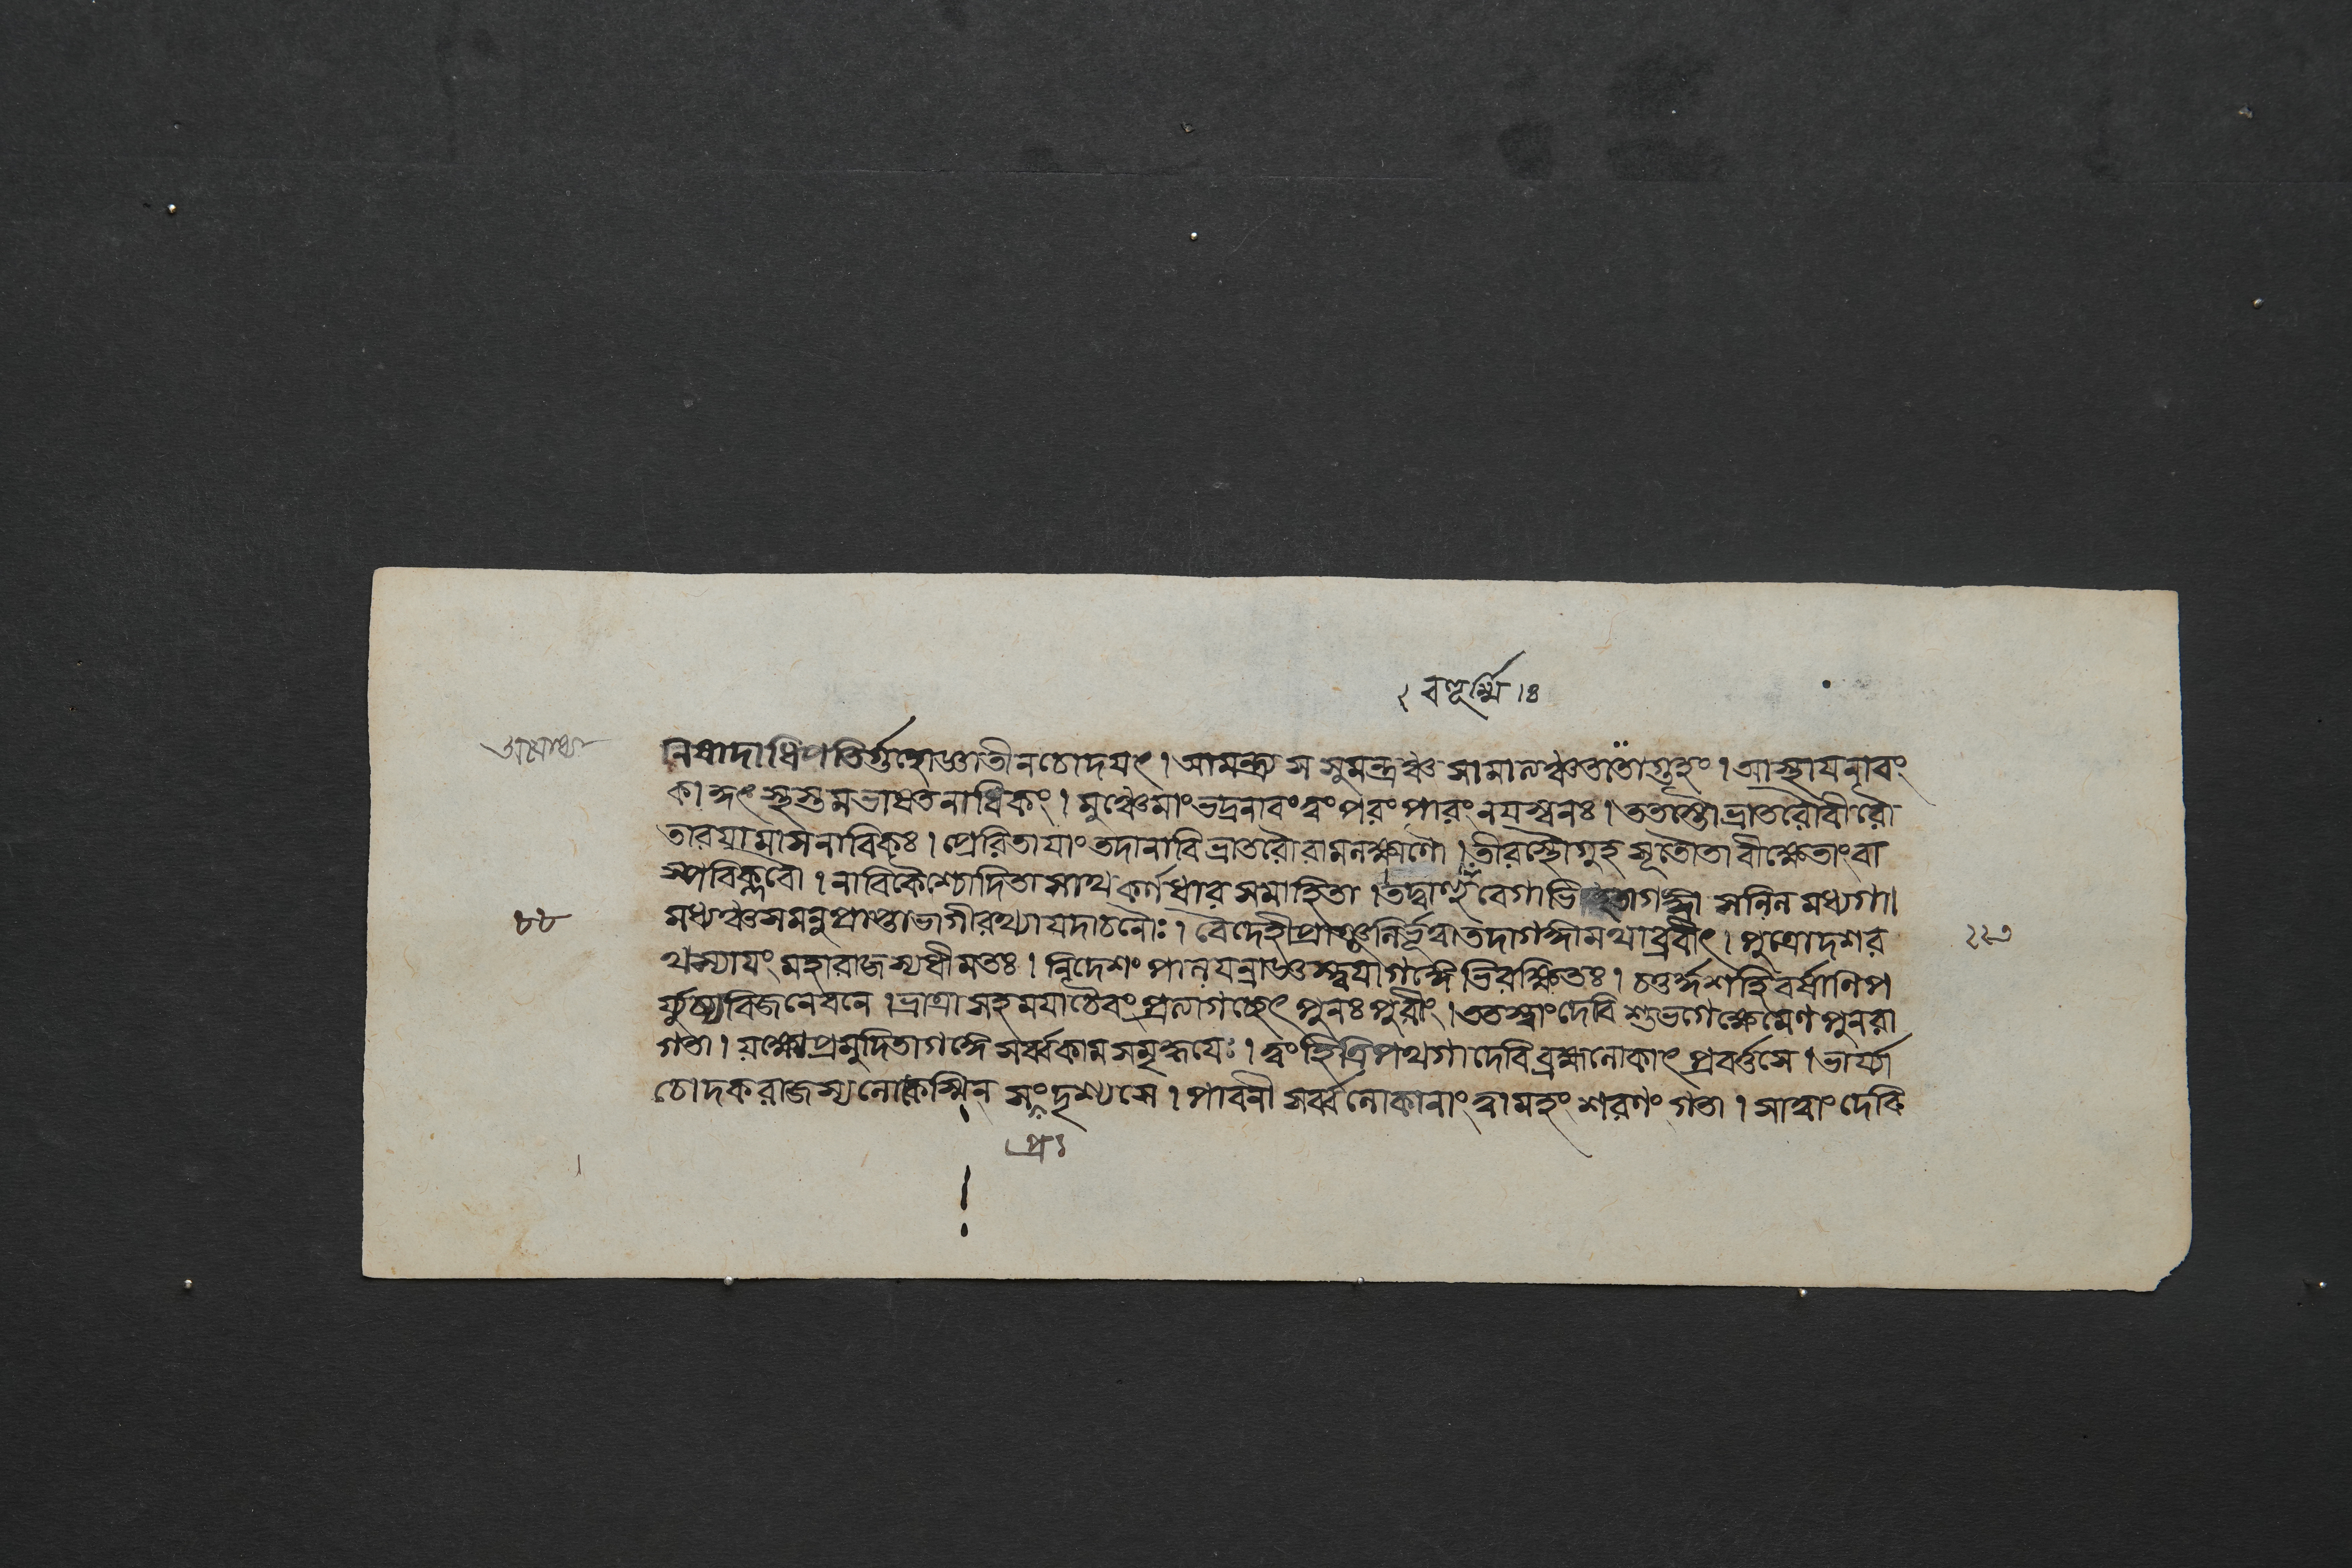 ২ বায়ূর্ম্মি । ৪
নিষাদাধিপতির্গুহোজ্ঞাতীনচোদয়ৎ । আমন্ত্র্য স সুমন্ত্রঞ্চ সামাত্যঞ্চততোগুহং । আস্থায়নাবং
কাকুৎস্থস্তমভাষতনাবিকং । মুঞ্চেমাংভদ্রনাবংত্বংপরংপারংনয়স্বনঃ । ততস্তৌভ্রাতরৌবীরৌ
তারয়ামাসনাবিকঃ । প্রেরিতায়াংতদানাবি ভ্রাতরৌরামলক্ষ্মণৌ । তীরস্থৌগুহসূতৌতাবীক্ষেতাংবা
স্পবিক্লবৌ । নাবিকৈশ্চোদিতাসাথ কর্ণধারসমাহিতা । বেগাভি সলিলমধ্যগা।
৮৮ মধ্যঞ্চসমনুপ্রাপ্তাভাগীরথ্যাযদাচনৌঃ । বৈদেহীপ্রাঞ্জলির্ভূত্বাতদাগঙ্গামথাব্রবীৎ । পুত্রোদশর
থস্যায়ংমহারাজস্যধীমতঃ । নিদেশংপালয়ন্রাজ্ঞস্ত্বয়াগঙ্গেভিরক্ষিতঃ । চতুর্দ্দশহিবর্ষাণিপ
র্য্যুষ্যবিজনেবনে । ভ্রাত্রাসহময়াচৈবংপ্রত্যাগচ্ছেৎ পুনঃপুরীং । ততস্ত্বাংদেবি শুভগেক্ষেমেণপুনরা
গতা । যক্ষ্যেপ্রমুদিতাগঙ্গে সর্ব্বকামসমৃদ্ধয়েঃ । ত্বংহিত্রিপথগাদেবি ব্রহ্মলোকাৎ প্রবর্ত্তসে । ভার্য্যা
চোদকরাজস্যলোকস্মিন সংদৃশ্যসে । পাবনী সর্ব্বলোকানাং ত্বামহং শরণং গতা । সাত্বাংদেবি
প্রঃ